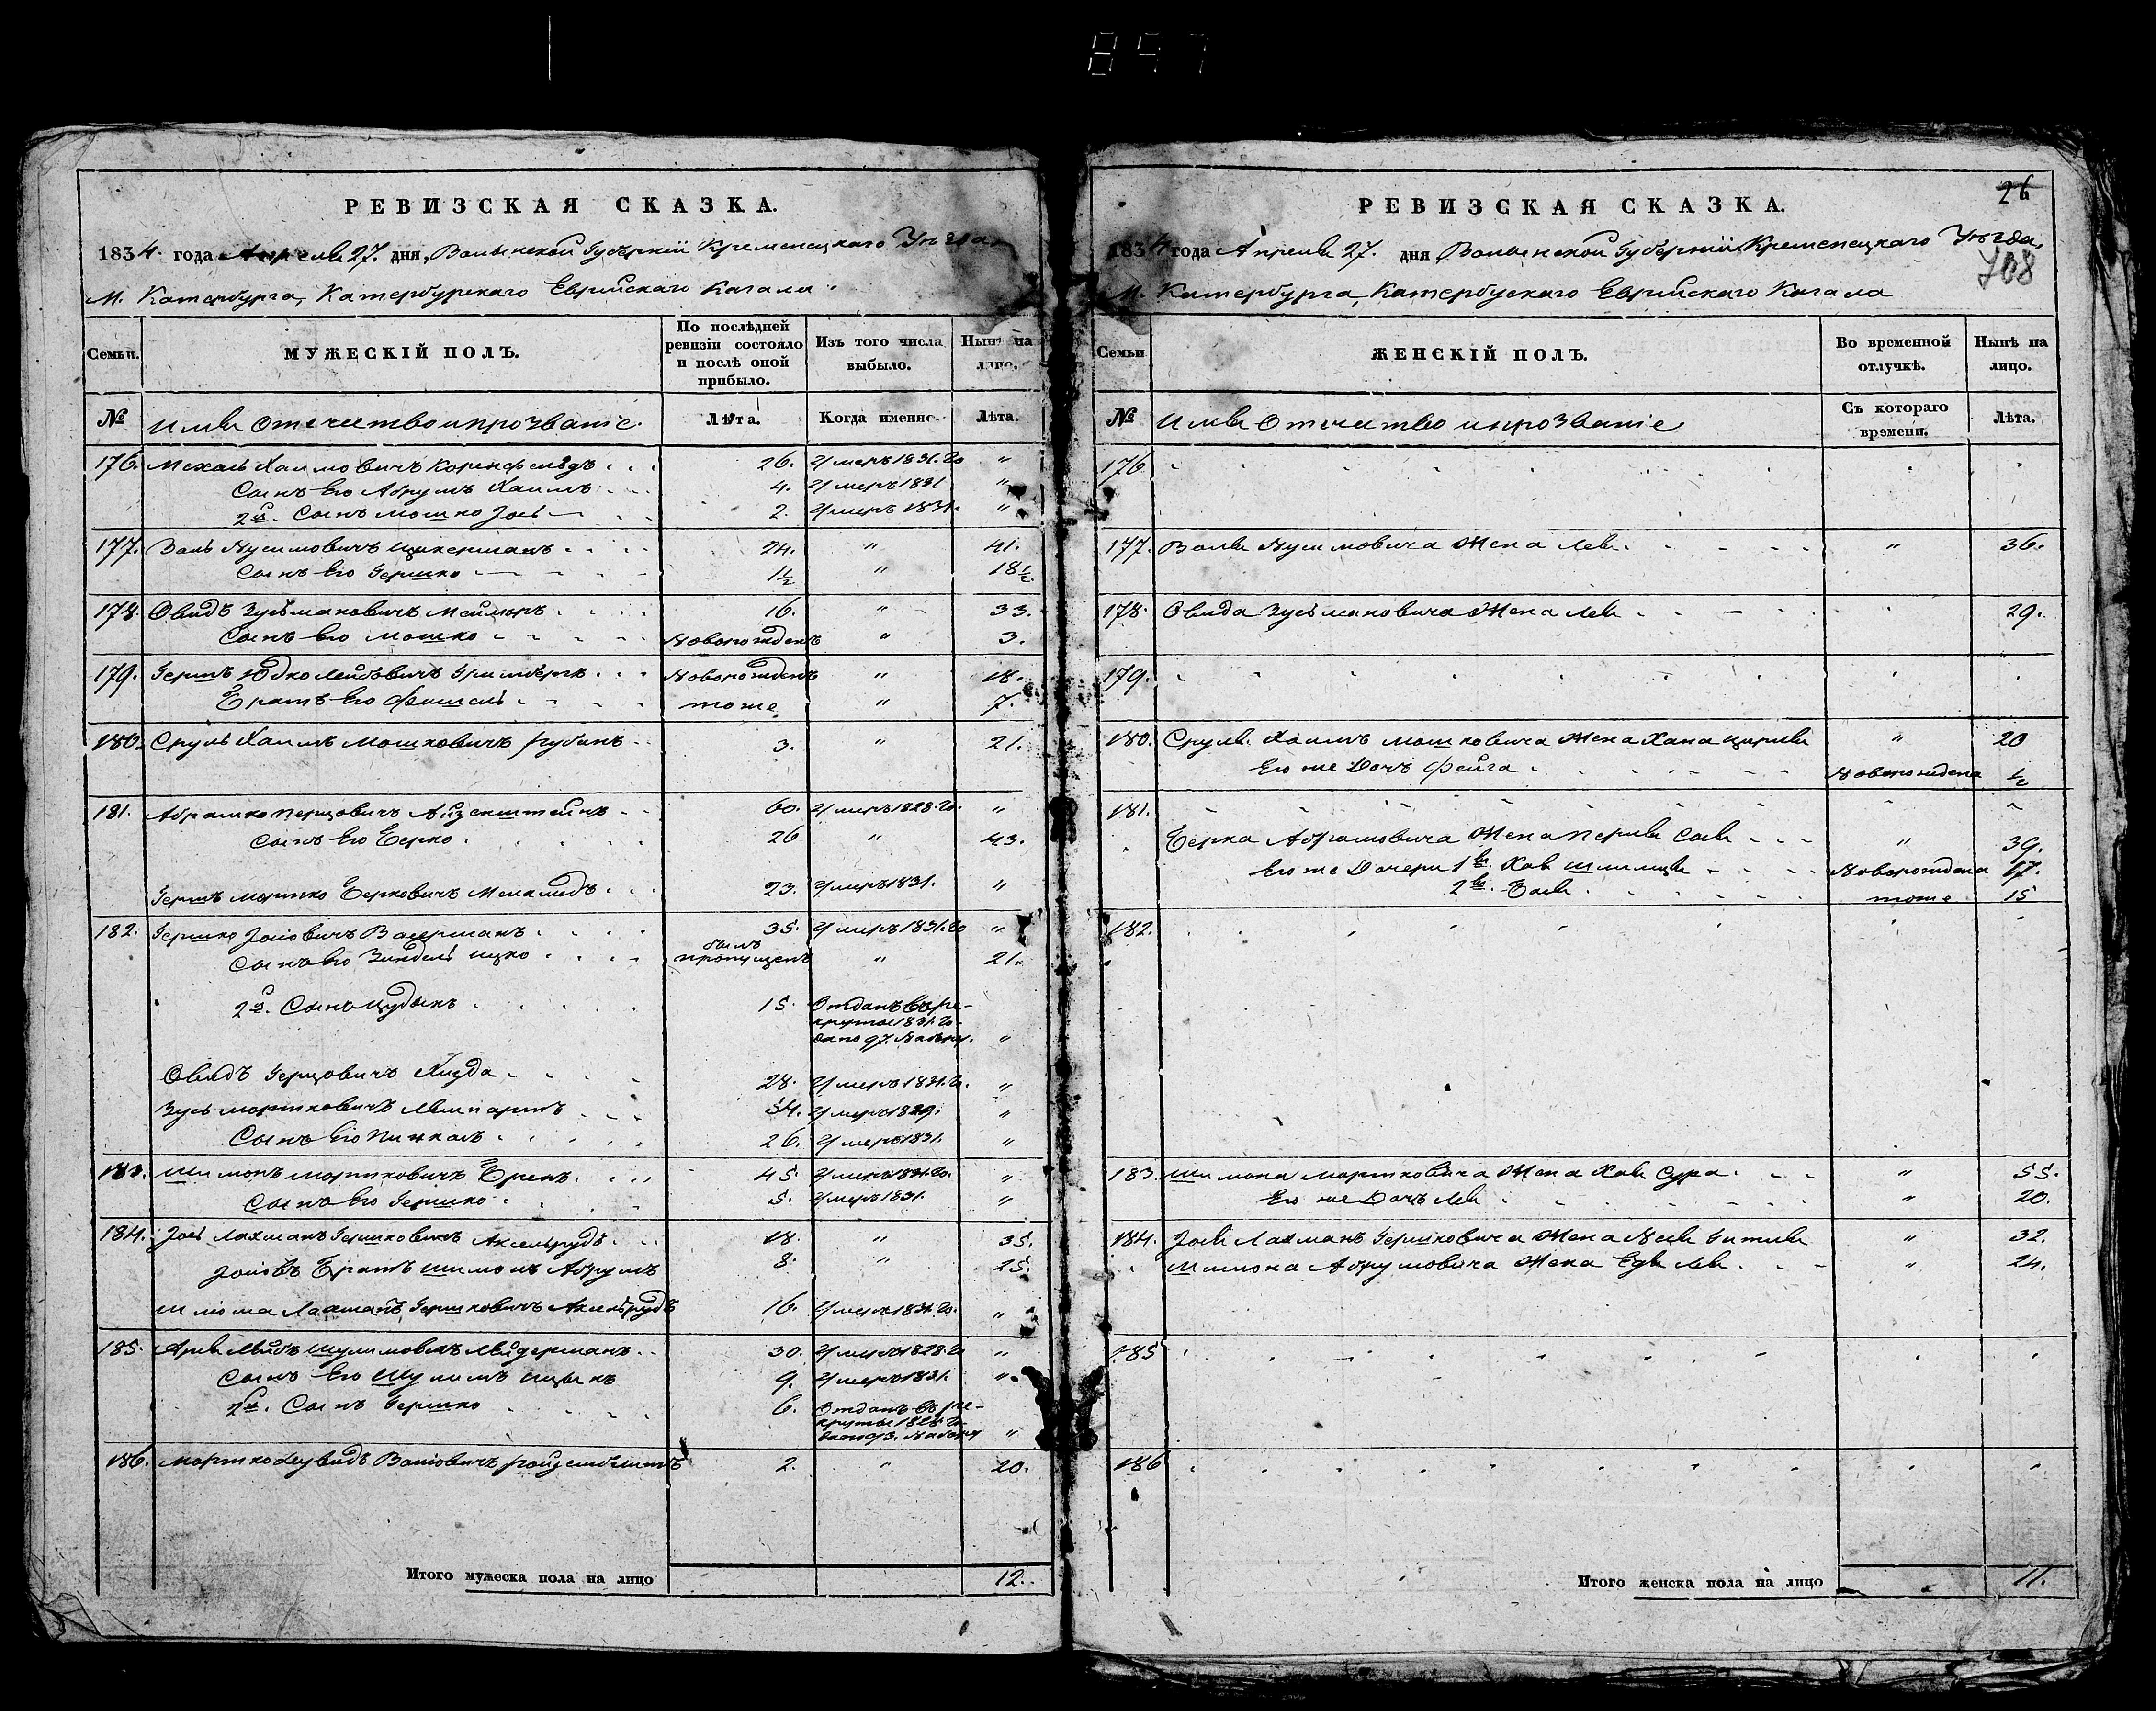 897
РЕВИЗСКАЯ СКАЗКА.
1834. года Апреля 27. дня, Волынской Губерніи Кременецкаго Уѣзда,
М. Катербурга, Катербурскаго Еврейскаго Кагала.
Семьи.
МУЖЕСКІЙ ПОЛЪ.
По послѣдней ревизіи состояло и послѣ оной прибыло.
Изъ того числа выбыло.
Нынѣ на лицо.
№ Имя Отечество и прозваніе. Лѣта. Когда именно. Лѣта.
176. Мехаль Хаимовичъ Коренфельдъ 26. Умеръ 1831. го "
Сынъ Его Абрумъ Хаимъ 4. Умеръ 1831 "
2й. Сынъ Мошко Іось 2. Умеръ 1831. "
177. Воль Нусимовичъ Цукерманъ 24. " 41.
Сынъ Его Гершко 1½ " 18½.
178. Овидъ Зусьмановичъ 16. " 33.
Сынъ Его Мошко Новорожденъ " 3.
179. Гершъ Юдко Лейбовичъ Гримбергъ Новорожденъ " 18.
Братъ Его Фишель тоже " 7.
180. Сруль Хаимъ Мошковичъ Рубинъ 3. " 21.
181. Абрамко Перцовичъ Айзенштейнъ 60. Умеръ 1828. го. "
Сынъ Его Берко 26 " 43.
Гершъ Мортко Берковичъ Меламедъ 23. Умеръ 1831. "
182. Гершко Іосіовичъ Васерманъ 35. Умеръ 1831. го "
Сынъ Его Зиндель Ицко былъ пропущенъ " 21.
2й. Сынъ Цудыкъ 15. Отданъ въ ре-
круты 1831. го-
да по 97. Набору. "
Овидъ Герцовичъ 28. Умеръ 1831. го. "
Зусь Мортковичъ 54. Умеръ 1829. "
Сынъ Его Пинкасъ 26. Умеръ 1831. "
183. Шимонъ Мортковичъ 45. Умеръ 1831. го. "
Сынъ Его Гершко 5. Умеръ 1831. "
184. Іось Лахманъ Гершковичъ Аксельрудъ 18. " 35.
Іосіовъ Братъ Шимонъ Абрумъ 8. " 25.
Шліома Лахманъ Гершковичъ Аксельрудъ 16. Умеръ 1831. го. "
185. Арія Лейбъ Шулимовичъ Лейдерманъ 30. Умеръ 1828. го "
Сынъ Его Шулимъ Ицыкъ 9. Умеръ 1831. "
2й. Сынъ Гершко 6. Отданъ въ ре-
круты 1828 го-
да по 93. Набору "
186. Мортко Деувидъ Волiовичъ 2. " 20.
Итого мужеска пола на лицо 12.
26
РЕВИЗСКАЯ СКАЗКА.
1834 года Апреля 27. дня Волынской Губерніи Кременецкаго Уѣзда,
708
М. Катербурга, Катербускаго Еврейскаго Кагала
Семьи
ЖЕНСКІЙ ПОЛЪ.
Во временной отлучкѣ.
Нынѣ на лицо.
№ Имя Отечество и прозваніе Съ котораго времени. Лѣта.
176
177. Воля Нусимовича Жена Лея " 36.
178. Овида Зусьмановича Жена Лея 29.
179.
180. Сруля Хаимъ Мошковича Жена Хана Цирля " 20
Его же Дочь Фейга Новорождена ½
181.
Берка Абрамовича Жена Перля Сося " 39.
Его же Дочери 1я. Хая Новорождена 17.
2я. Бася тоже 15
182.
183. Шимона Мортковича Жена Хая Сура " 55.
Его же Дочь Лея " 20.
184. Іося Лахманъ Гершковича Жена Неся Гитля " 32.
Шимона Абрумовича Жена Лея " 24.
185
186
Итого женска пола на лицо 11.